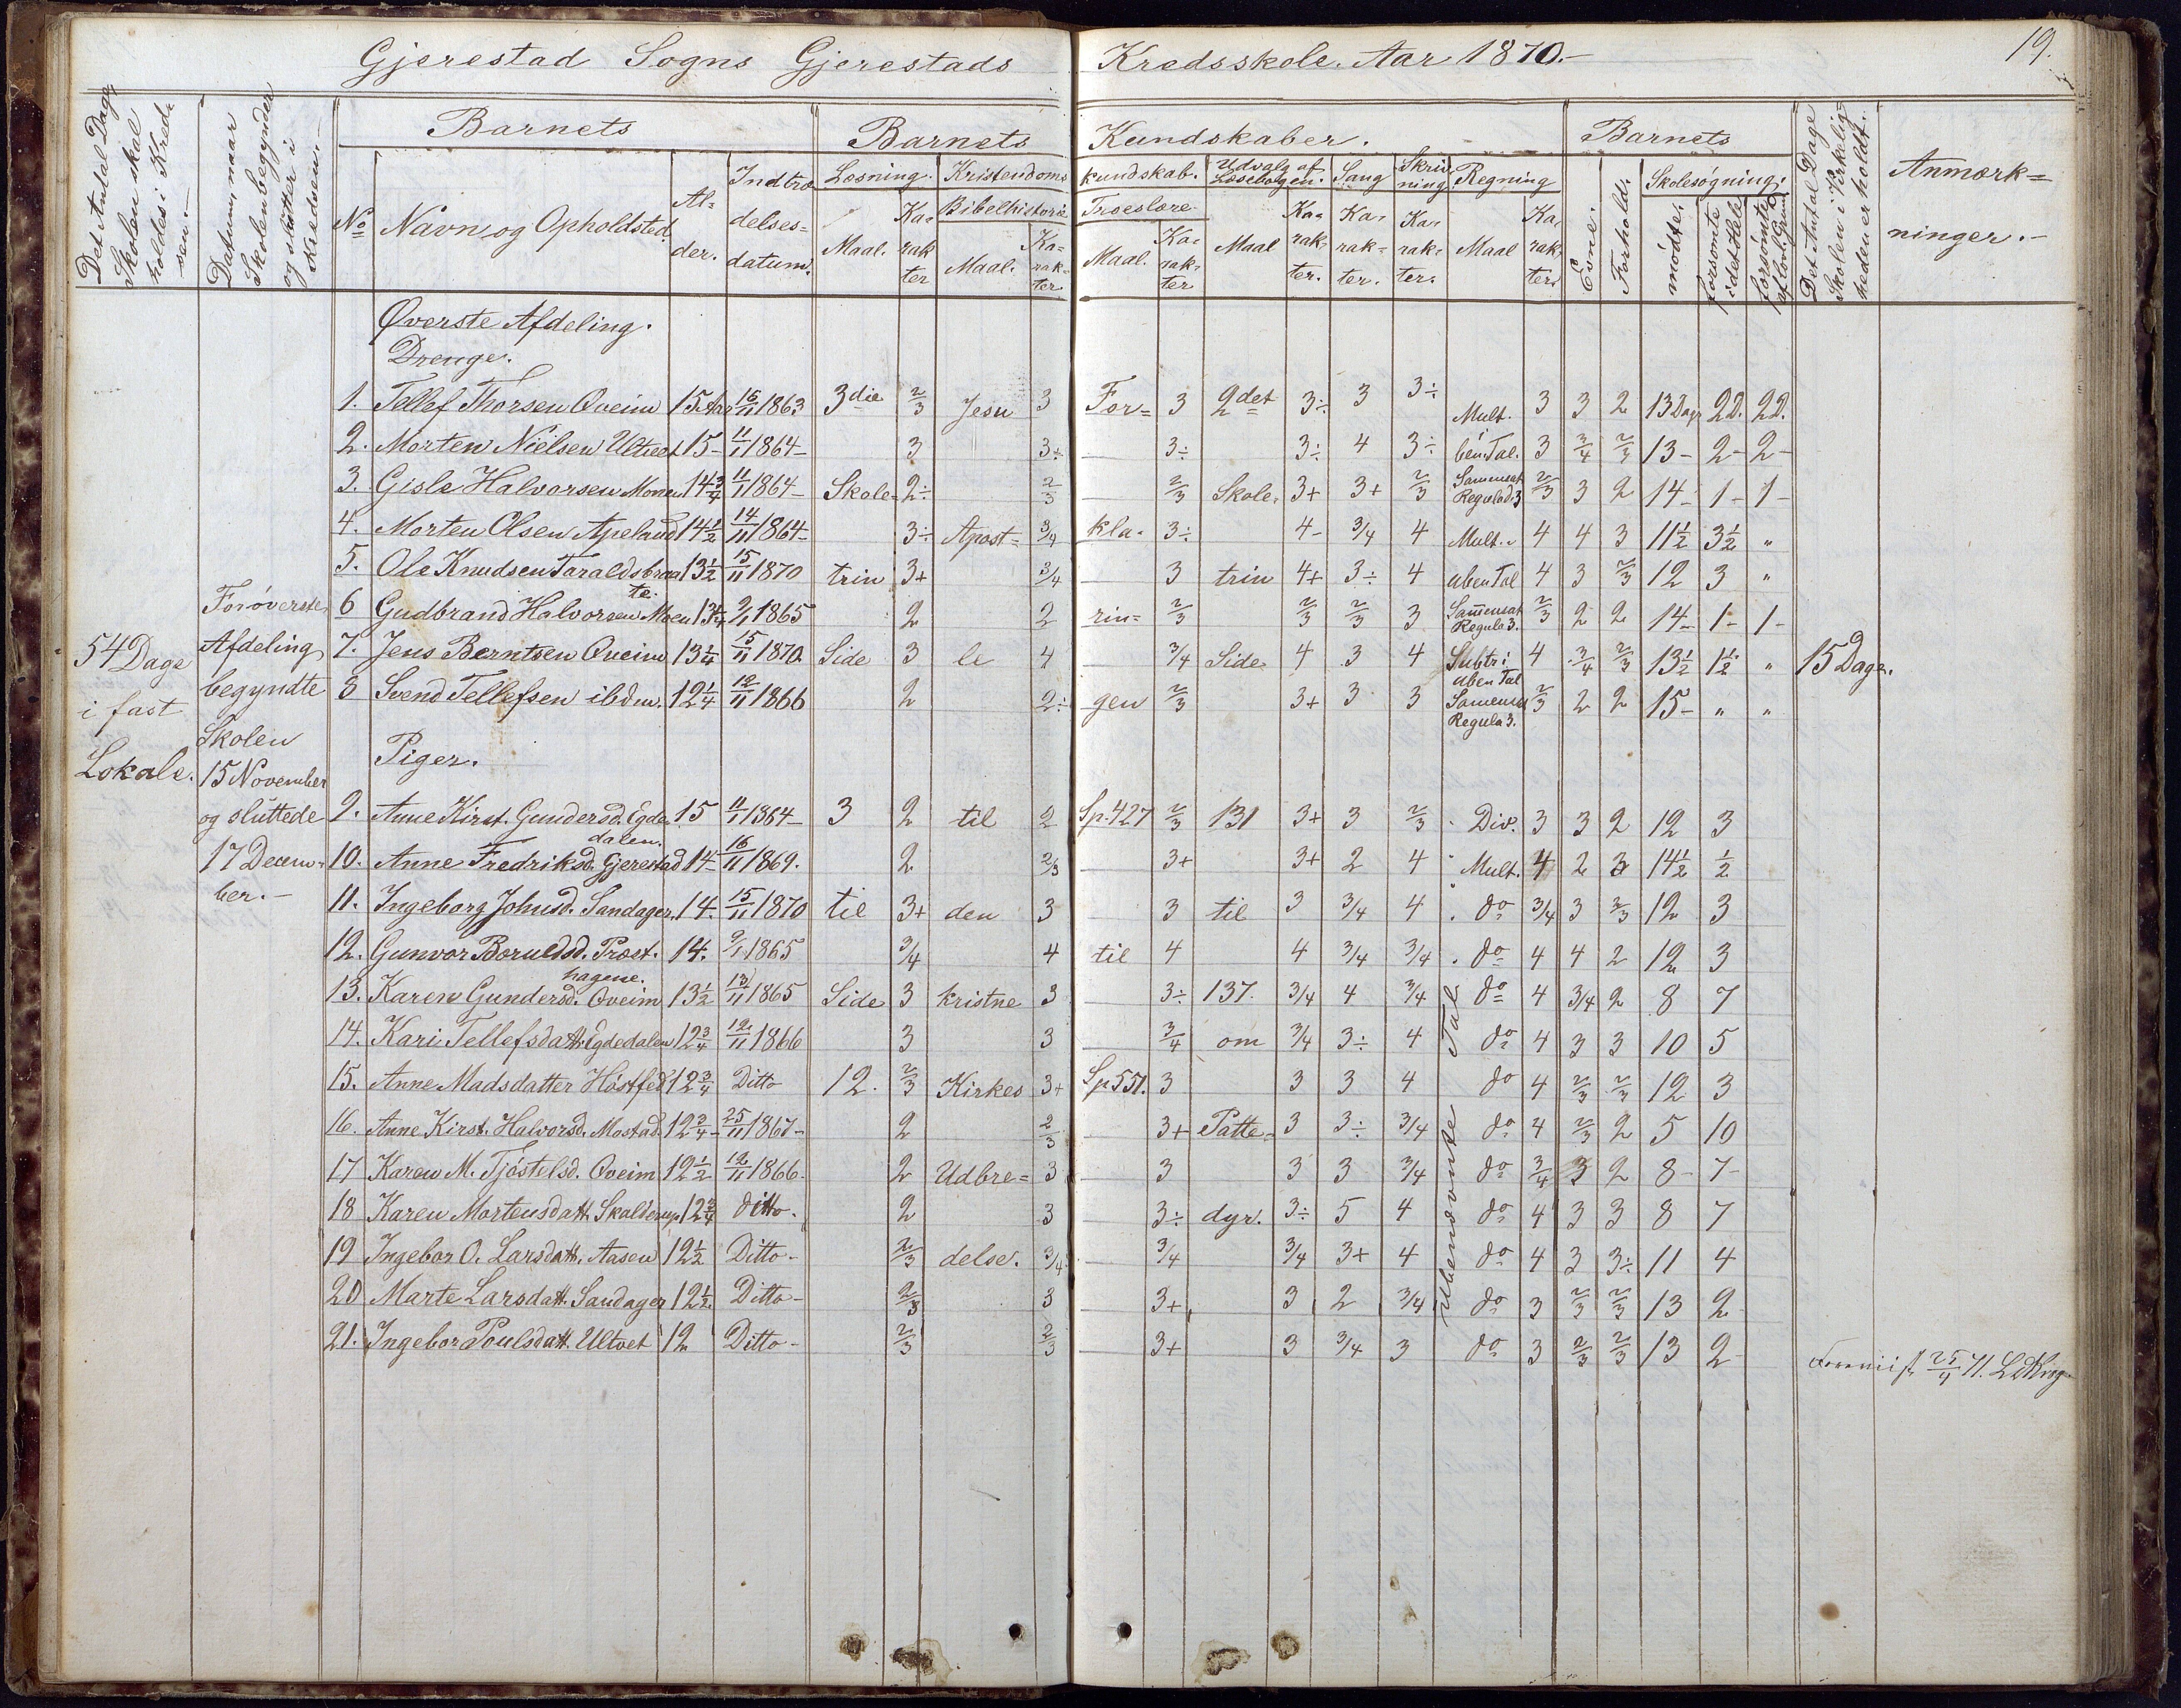 Gjerestad Sogns Gjerestads Kredsskole. Aar 1870.-
19.
Det Antal Dage Skolen skal holdes i Kredsen.-
Datum, naar Skolen begynder og slutter i Kredsen.-
Barnets
Barnets Kundskaber.
Barnets
Det Antal Dage Skolen i Virkeligheden er holdt.
Anmærkninger.-
No Navn og Opholdsted. Alder. Indtrædelsesdatum.
Læsning. Kristendomskundskab. Udvalg af Læsebogen. Sang Skrivning Regning
Evne. Forhold. Skolesøgning.
Bibelhistorie Troeslære
Maal. Karakter Maal. Karakter Maal. Karakter Maal Karakter. Karakter. Karakter. Maal Karakter
mødte. forsømte i det Hele forsømte af lovl. Grund
Øverste Afdeling.
Drenge.
1. Tellef Thorsen Qveim 15 Aar 16/11 1863 3die 2/3 Jesu 3 For= 3 2det 3÷ 3 3÷ Mult. 3 3 2 13 Dage 2D. 2D.
2. Morten Nielsen Ultvet 15- 11/1 1864- 3 3÷ 3÷ 3÷ 4 3÷ ben.Tal. 3 3/4 2/3 13- 2- 2-
3. Gisle Halvorsen Moen 14 3/4 11/1 1864- Skole= 2÷ 2/3 2/3 Skole= 3+ 3+ 2/3 Samensat Regulad.3 2/3 3 2 14- 1- 1-
4. Morten Olsen Apelund 14 1/2 14/11 1864- 3÷ Apost= 3/4 kla- 3÷ 4- 3/4 4 Mult. 4 4 3 11 1/2 3 1/2 "
5. Ole Knudsen Taraldsbraate. 13 1/2 15/11 1870 trin 3+ 3/4 3 trin 4+ 3÷ 4 uben Tal 4 3 2/3 12 3 "
6 Gudbrand Halvorsen Moen 13 1/4 9/1 1865 2 2 rin= 2/3 2/3 2/3 3 Samensat Regula 3. 2/3 2 2 14- 1- 1-
7. Jens Berntsen Qveim 13 1/4 15/11 1870 Side 3 le 4 3/4 Side 4 3 4 Subtr: uben Tal 4 3/4 2/3 13 1/2 1 1/2 "
8 Svend Tellefsen ibdm. 12 1/4 12/11 1866 2 2÷ gen 2/3 3+ 3 3 Samensat Regula 3. 2/3 2 2 15- " "
54 Dage
i fast
Lokale.
For øverste
Afdeling
begyndte
Skolen
15 November
og sluttede
17 Decem=
ber.-
15 Dage.
Piger.
9. Anne Kirst. Gundersd. Egdedalen. 15 11/1 1864- 3 2 til 2 Sp.427 2/3 131 3+ 3 2/3 Div. 3 3 2 12 3
10. Anne Fredriksd. Gjerestad 14- 16/11 1869. 2 2/3 3+ 3+ 2 4 Mult. 4 2 3 14 1/2 1/2
11. Ingeborg Johnsd. Sandager. 14. 15/11 1870 til 3+ den 3 3 til 3 3/4 4 do 3/4 3 2/3 12 3
12. Gunvor Boruldsd. Præsthagene. 14. 9/1 1865 3/4 4 til 4 4 3/4 3/4 do 4 4 2 12 3
13. Karen Gundersd. Qveim 13 1/2 13/11 1865 Side 3 kristne 3 3÷ 137. 3/4 4 3/4 do 4 3/4 2 8 7
14. Kari Tellefsdatt. Egdedalen 12 3/4 12/11 1866 3 3 3/4 om 3/4 3÷ 4 do 4 3 3 10 5
15. Anne Madsdatter Høstfed 12 3/4 Ditto 12. 2/3 Kirkes 3+ Sp 551. 3 3 3 4 do 4 2/3 2/3 12 3
16. Anne Kirst. Halvorsd. Mostad. 12 3/4- 25/11 1867- 2 2/3 3+ Patte= 3 3÷ 3/4 do 4 2/3 2 5 10
17 Karen M. Tjøstelsd. Qveim 12 1/2 12/11 1866. 2 Udbre= 3 3 3 3 3/4 do 3/4 3 2 8- 7-
18 Karen Mortensdatt. Skalderup 12 3/4 ditto. 2 3 3÷ dyr. 3÷ 5 4 do 4 3 3 8 7
19 Ingebor O. Larsdatt. Aasen 12 1/2 Ditto- 2/3 delse. 3/4 3/4 3/4 3+ 4 do 4 3 3÷ 11 4
20 Marte Larsdatt. Sandager 12 1/2 Ditto- 2/3 3 3+ 3 2 3/4 do 3 2/3 2/3 13 2
21. Ingebor Poulsdatt. Ultvet 12 Ditto- 2/3 2/3 3+ 3 3/4 3 do 3 2/3 2/3 13 2
Ubenævnte Tal
71.